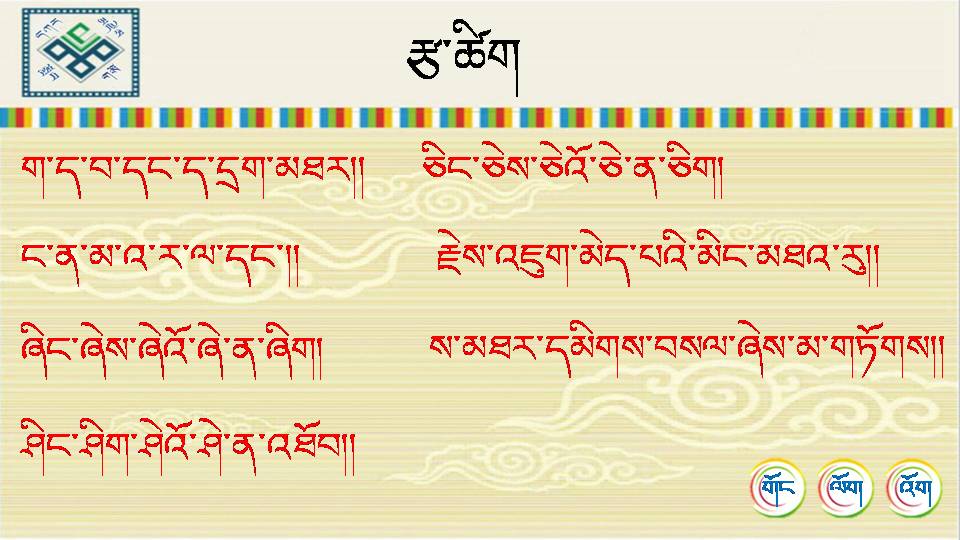 རྩ་ཚིག
ག་ད་བ་དང་ད་དྲག་མཐར།། ཅིང་ཅེས་ཅེའོ་ཅེ་ན་ཅིག།
ང་ན་མ་འ་ར་ལ་དང་།། རྗེས་འཇུག་མེད་པའི་མིང་མཐའ་རུ།།
ཞིང་ཞེས་ཞེའོ་ཞེ་ན་ཞིག། ས་མཐར་དམིགས་བསལ་ཞེས་མ་གཏོགས།།
ཤིང་ཤིག་ཤེའོ་ཤེ་ན་འཐོབ།།
གོང ལོག འོག